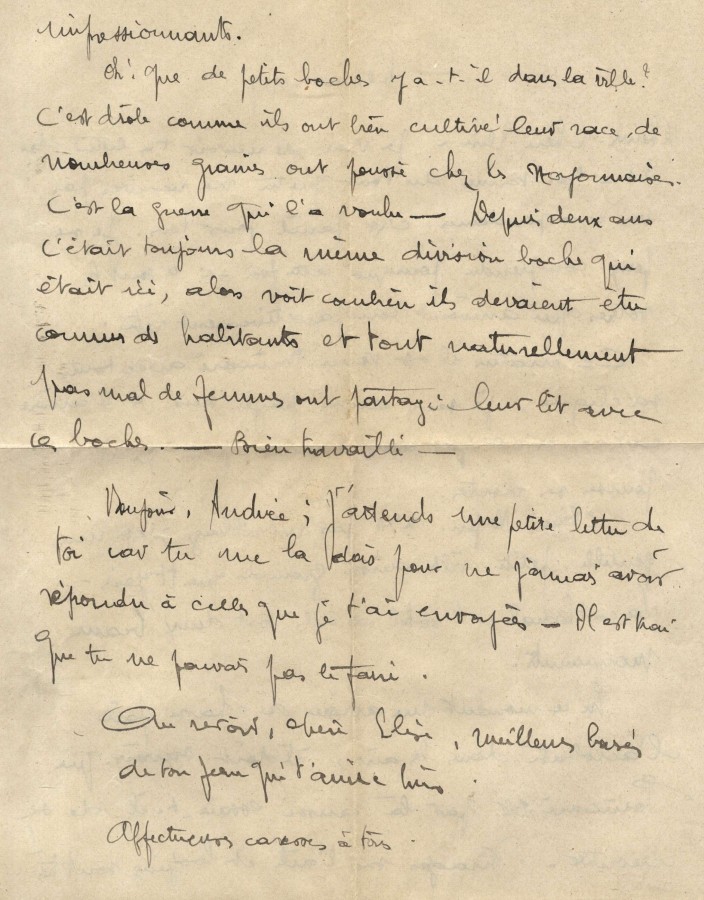 impressionnants.
Oh! que de petits boches y a-t-il dans la ville?
C'est drôle comme ils ont bien cultivé leur race, de
nombreuses graines ont poussé chez les
C'est la guerre qui l'a voulu — Depuis deux ans
c'était toujours la même division boche qui
était ici, alors voit combien ils devaient être
connus des habitants et tout naturellement
pas mal de femmes ont partagé leur lit avec
ces boches. — Bien travaillé —
Bonjour, Andrée; j'attends une petite lettre de
toi car tu me la dois pour ne jamais avoir
répondu à celles que je t'ai envoyées — Il est vrai
que tu ne pouvais pas le faire.
Au revoir, chère Elise, meilleurs baisers
de ton frère qui t'aime bien.
Affectueuses caresses à tous.